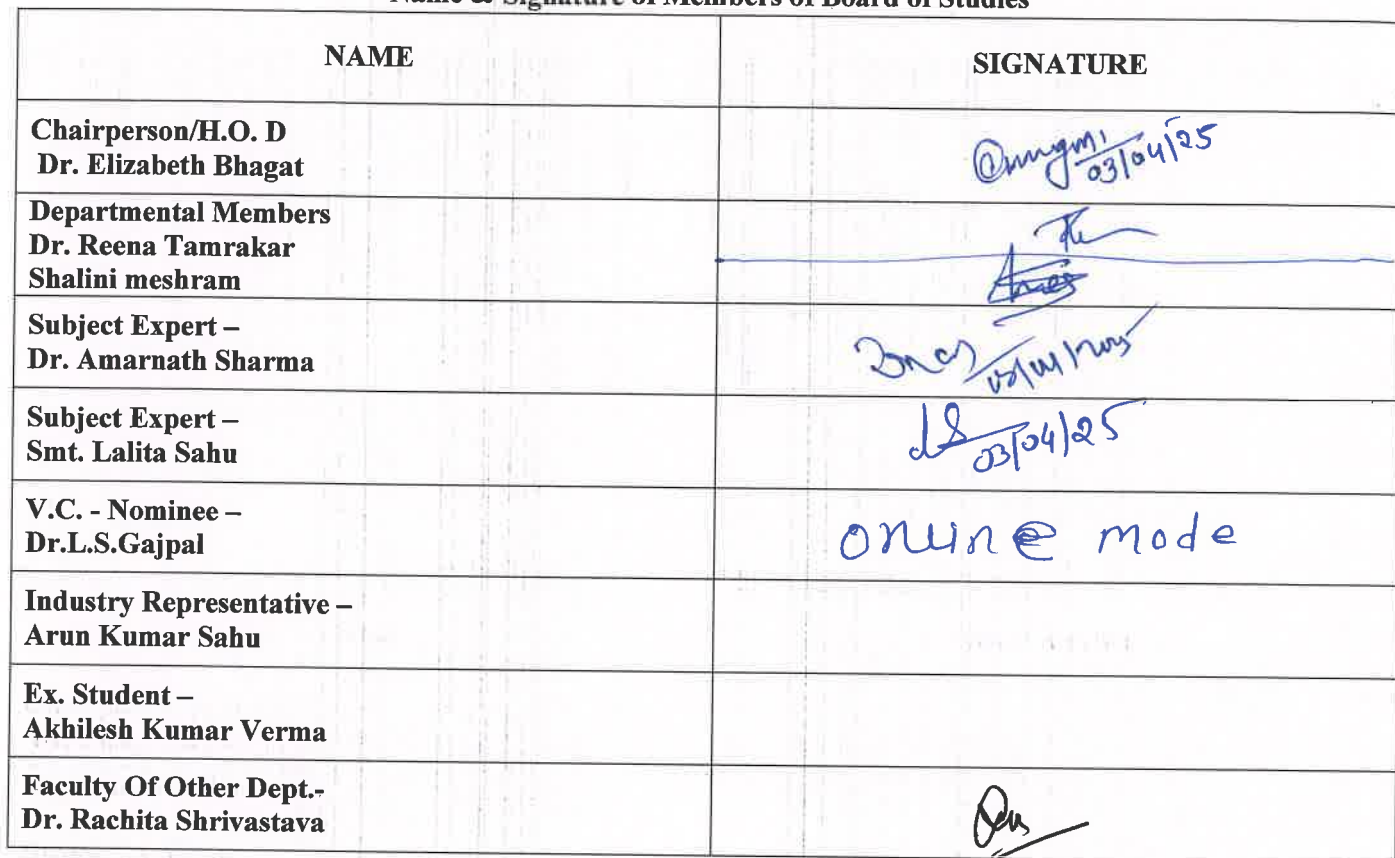 Name & Signature of Members of Board of Studies
NAME
SIGNATURE
Chairperson/H.O. D
Dr. Elizabeth Bhagat
03/04/25
Departmental Members
Dr. Reena Tamrakar
Shalini meshram
Subject Expert –
Dr. Amarnath Sharma
Subject Expert –
Smt. Lalita Sahu
03/04/25
V.C. - Nominee –
Dr.L.S.Gajpal
online mode
Industry Representative –
Arun Kumar Sahu
Ex. Student –
Akhilesh Kumar Verma
Faculty Of Other Dept.-
Dr. Rachita Shrivastava